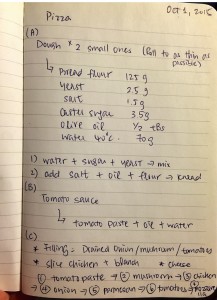 Oct 1, 2015
Pizza
(A)
Dough * 2 small ones (Roll to as thin as
possible)
↳ Bread flour 125 g
Yeast 2.5 g
Salt 1.5 g
Caster sugar 3.5g
Olive oil 1/2 tbs
Water 40°c 70g
1) water + sugar + yeast → mix
2) add salt + oil + flour → knead
(B)
Tomato sauce
↳ tomato paste + oil + water
(C)
* Filling = Drained onion/mushroom/tomatoes
* slice chicken + blanch * cheese
① tomato paste → ② mushroom → ③ chicken
→ ④ onion → ⑤ parmesan → ⑥ tomatoes →